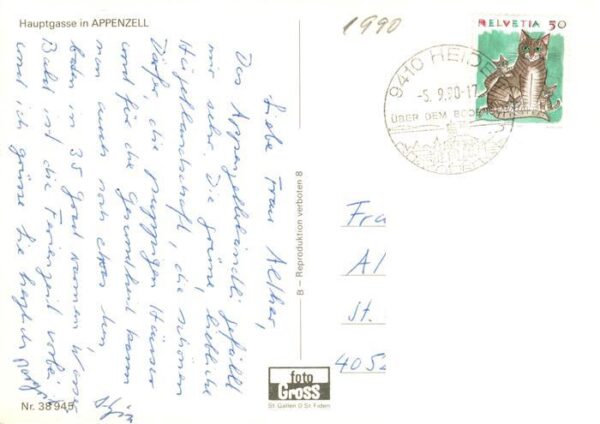 Hauptgasse in APPENZELL
1990
HELVETIA 50
9410 HEIDEN
-5. 9.90-17
ÜBER DEM BODENSEE
Liebe Frau Alther,
Das Appenzellerländli gefällt
mir sehr. Die grüne, liebliche
Hügellandschaft, die schönen
Dörfer, die Häuser
und für die Gesundheit kann
man auch noch etwas tun,
baden in 35 grad warmen Wasser
Bald ist die Ferienzeit vorbei
und ich grüsse Sie herzlich
B – Reproduktion verboten 8
Fra
Al
St.
4052
foto
Gross
St. Gallen O St. Fiden
Nr. 38 945